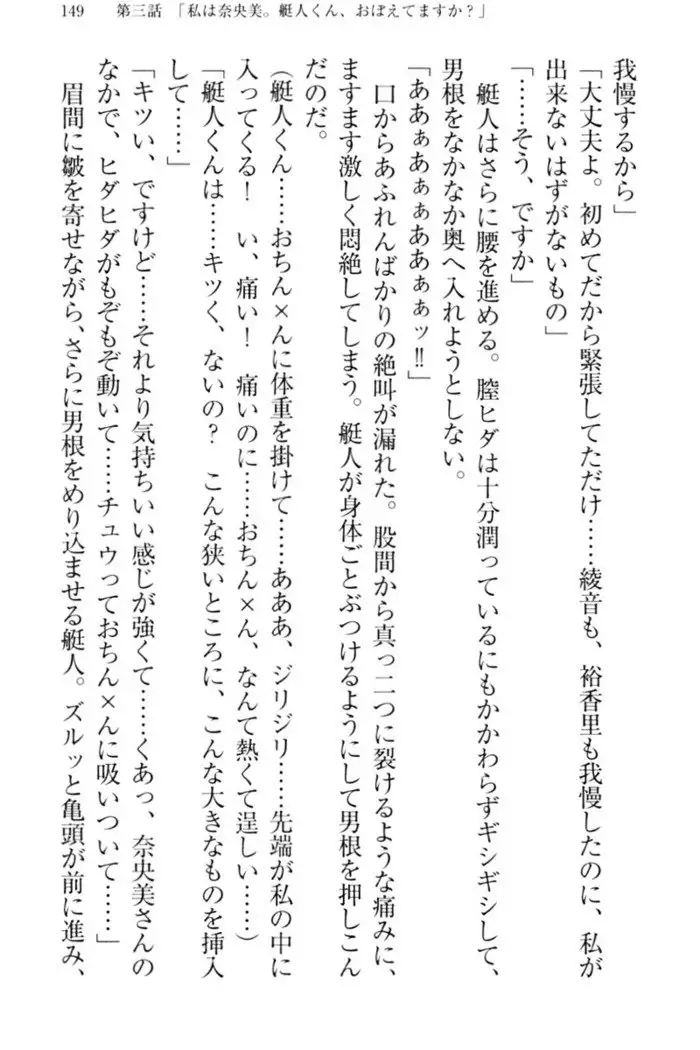 149　第三話　「私は奈央美。艇人くん、おぼえてますか？」
我慢するから」
「大丈夫よ。初めてだから緊張してただけ……綾音も、裕香里も我慢したのに、私が
出来ないはずがないもの」
「……そう、ですか」
艇人はさらに腰を進める。膣ヒダは十分潤っているにもかかわらずギシギシして、
男根をなかなか奥へ入れようとしない。
「ああぁあぁぁああぁぁッ‼」
口からあふれんばかりの絶叫が漏れた。股間から真っ二つに裂けるような痛みに、
ますます激しく悶絶してしまう。艇人が身体ごとぶつけるようにして男根を押しこん
だのだ。
（艇人くん……おちん×んに体重を掛けて……あああ、ジリジリ……先端が私の中に
入ってくる！　い、痛い！　痛いのに……おちん×ん、なんて熱くて逞しい……）
「艇人くんは……キツく、ないの？　こんな狭いところに、こんな大きなものを挿入
して……」
「キツい、ですけど……それより気持ちいい感じが強くて……くあっ、奈央美さんの
なかで、ヒダヒダがもぞもぞ動いて……チュウっておちん×んに吸いついて……」
眉間に皺を寄せながら、さらに男根をめり込ませる艇人。ズルッと亀頭が前に進み、